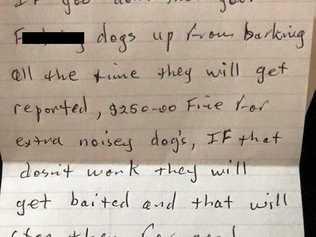 F      g dogs up from barking
all the time they will get
reported, $250-00 Fine for
extra noisey dog's, IF that
dosn't work they will
get baited and that will